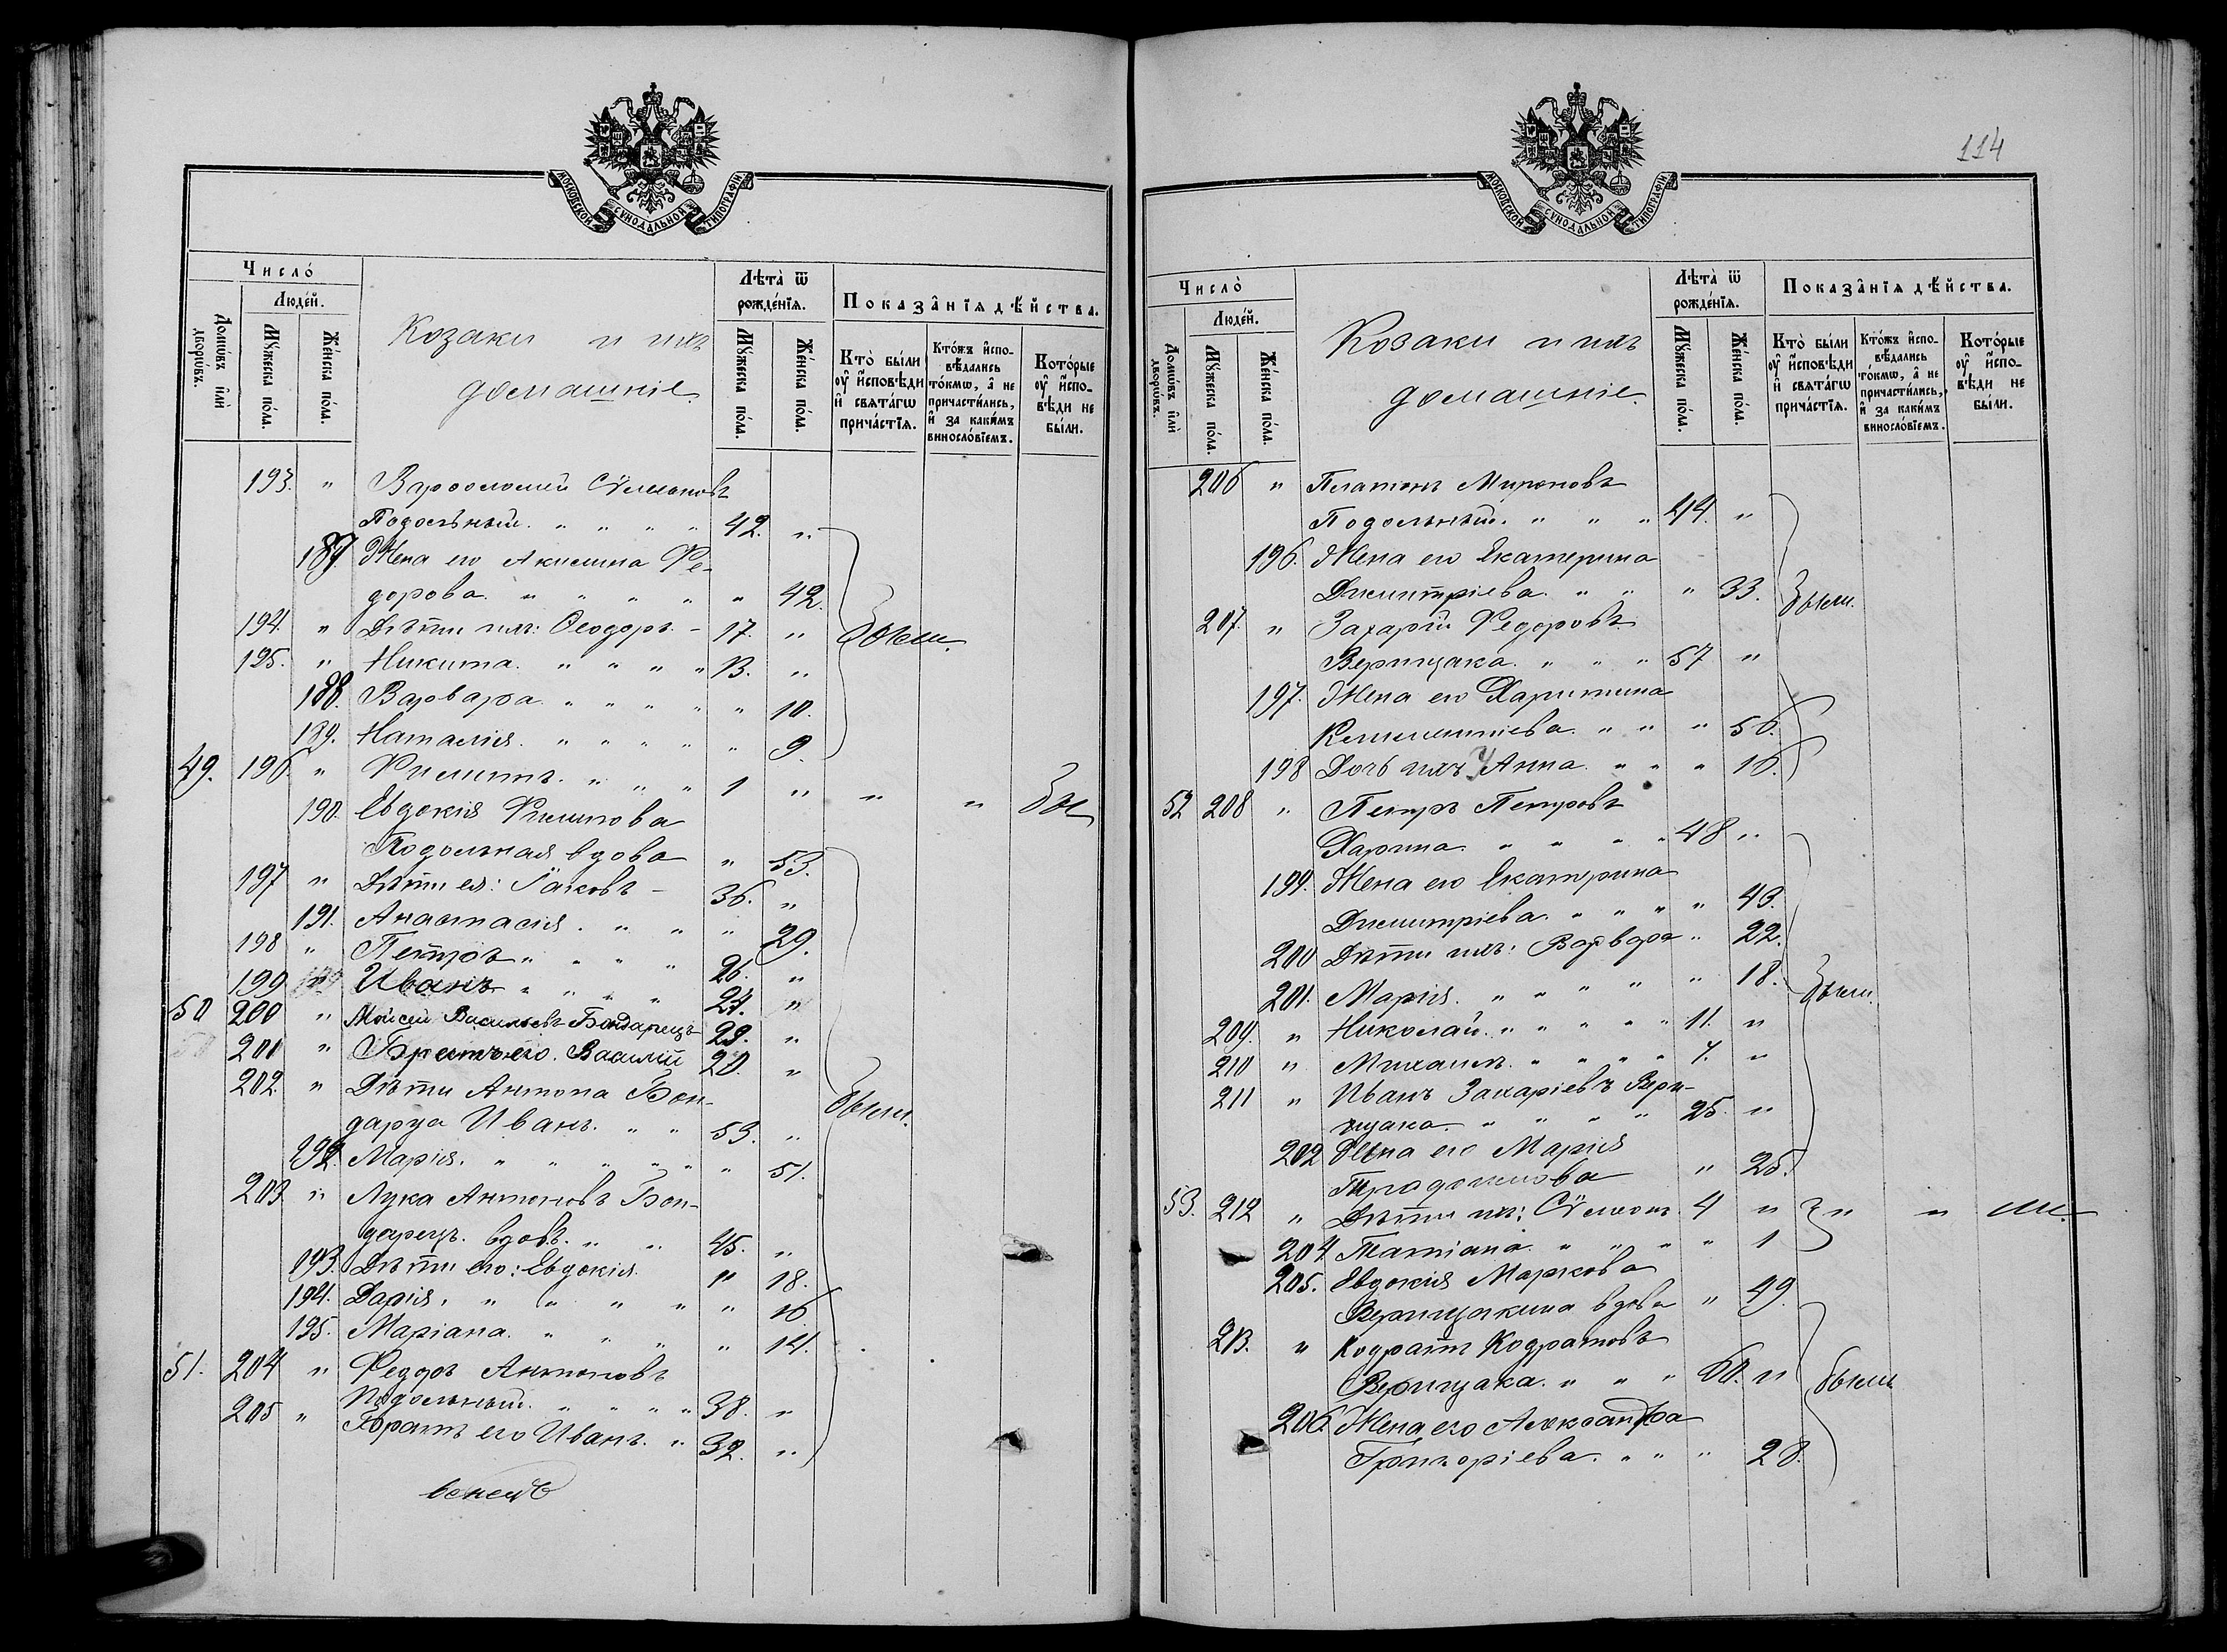 МОСКОВСКОЙ СѴНОДАЛЬНОЙ ТИПОГРАФІИ
Число́
Людей.
Домѡ́въ и҆лѝ дворѡ́въ.
Мꙋ́жеска по́ла.
Же́нска по́ла.
Козаки и ихъ
домашніе.
Лѣ́та ѿ рожде́нїѧ.
Мꙋ́жеска по́ла.
Же́нска по́ла.
Показа̑нїѧ дѣ́йства.
Кто̀ бы́ли оу҆ и҆́сповѣди и҆ свѧта́гѡ прича́стїѧ.
Кто́жъ и҆спо-вѣдались то́кмѡ, а҆ не причасти́лись, и҆ за каки́мъ винослові́емъ.
Кото́рые оу҆ и҆́спо-вѣди не бы́ли.
193. " Варѳоломей Сѵмеоновъ
Подольный. " " " " 42. "
187. Жена его Акилина Ѳе-
дорова. " " " " " 42.
194. " Дѣти ихъ: Ѳеодоръ - 17. "
были.
195. " Никита. " " " " 13. "
188. Варвара. " " " " " 10.
189. Наталія. " " " " " 9.
49. 196. " Филиппъ. " " " 1 " " " бы
190. Евдокія Филипова
Подольная вдова " 53.
197 " Дѣти ея: Іаковъ - 36. "
191. Анастасія. " " " 29.
198 " Петръ " " " " 26. "
199. " Иванъ " " " " 24. "
50 200 " Мойсей Васильевъ Бондарецъ 29. "
201 " Братъ его Василій 20. "
202. " Дѣти Антона Бон-
дарца Иванъ. " " 53. "
были.
192. Марія. " " " " " " 51.
203 " Лука Антоновъ Бон-
дарецъ. вдовъ. " " 45. "
193. Дѣти его: Евдокія. " 18.
194. Дарія. " " " " " 16.
195. Маріана. " " " " 14.
51. 204 " Ѳедоръ Антоновъ
Подольный. " " " " 38. "
205 " Братъ его Иванъ. " 32. "
114
МОСКОВСКОЙ СѴНОДАЛЬНОЙ ТИПОГРАФІИ
Число̀
Людей.
Домѡ́въ и҆лѝ дворѡ́въ.
Мꙋ́жеска по́ла.
Же́нска по́ла.
Козаки и ихъ
домашніе.
Лѣ́та ѿ рожде́нїѧ.
Мꙋ́жеска по́ла.
Же́нска по́ла.
Показа̑нїѧ дѣ́йства.
Кто̀ бы́ли оу҆ и҆́сповѣди и҆ свѧта́гѡ прича́стїѧ.
Кто́жъ и҆спо-вѣдались то́кмѡ, а҆ не причасти́лись, и҆ за каки́мъ винослові́емъ.
Кото́рые оу҆ и҆́спо-вѣди не бы́ли.
206 " Платонъ Мироновъ
Подольный. " " " 44. "
196. Жена его Екатерина
Димитріева. " " " 33.
были.
207. " Захарій Ѳедоровъ
Верищака. " " " 57 "
197. Жена его Харитина
Климентіева. " " " 56.
198 Дочь ихъ Анна. " " " 16.
52 208 " Петръ Петровъ
Харина. " " " " 48 "
199. Жена его Екатерина
Димитріева. " " " " 43.
200 Дѣти ихъ: Варвара " 22.
201. Марія. " " " " " 18.
были.
209. " Николай. " " " " 11. "
210 " Михаилъ. " " " " 7. "
211 " Иванъ Захаріевъ Вери-
щака. " " " " 25. "
202 Жена его Марія
" 25.
53. 212 " Дѣти ихъ: Сѵмеонъ 4 " " " ли.
204 Татіана. " " " " 1
205. Евдокія Маркова
Верищакина вдова " 49.
213. " Кодратъ Кодратовъ
Верищака. " " " 60. "
были
206. Жена его Александра
Григоріева. " " " 28.